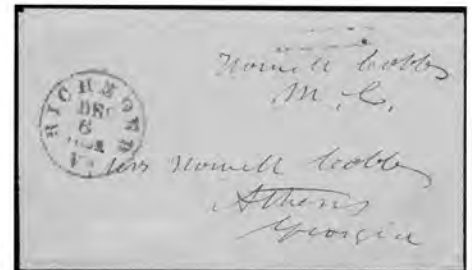 Howell Cobb
M. C.
RICHMOND
DEC
6
Va.
Mrs Howell Cobb
Athens
Georgia